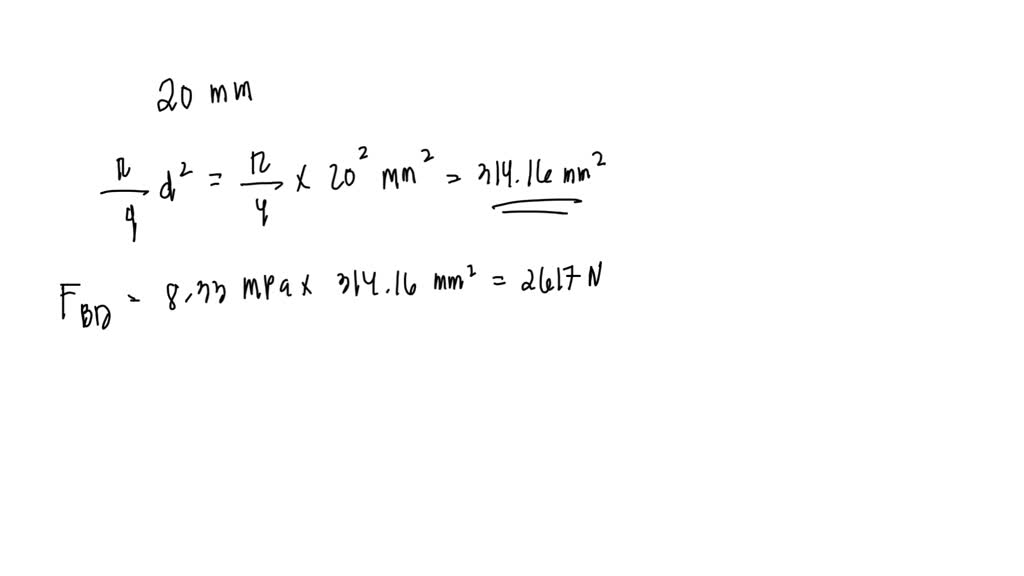 20 mm
π/4 d² = π/4 × 20² mm² = 314.16 mm²
F_BD = 8.33 mPa × 314.16 mm² = 2617 N